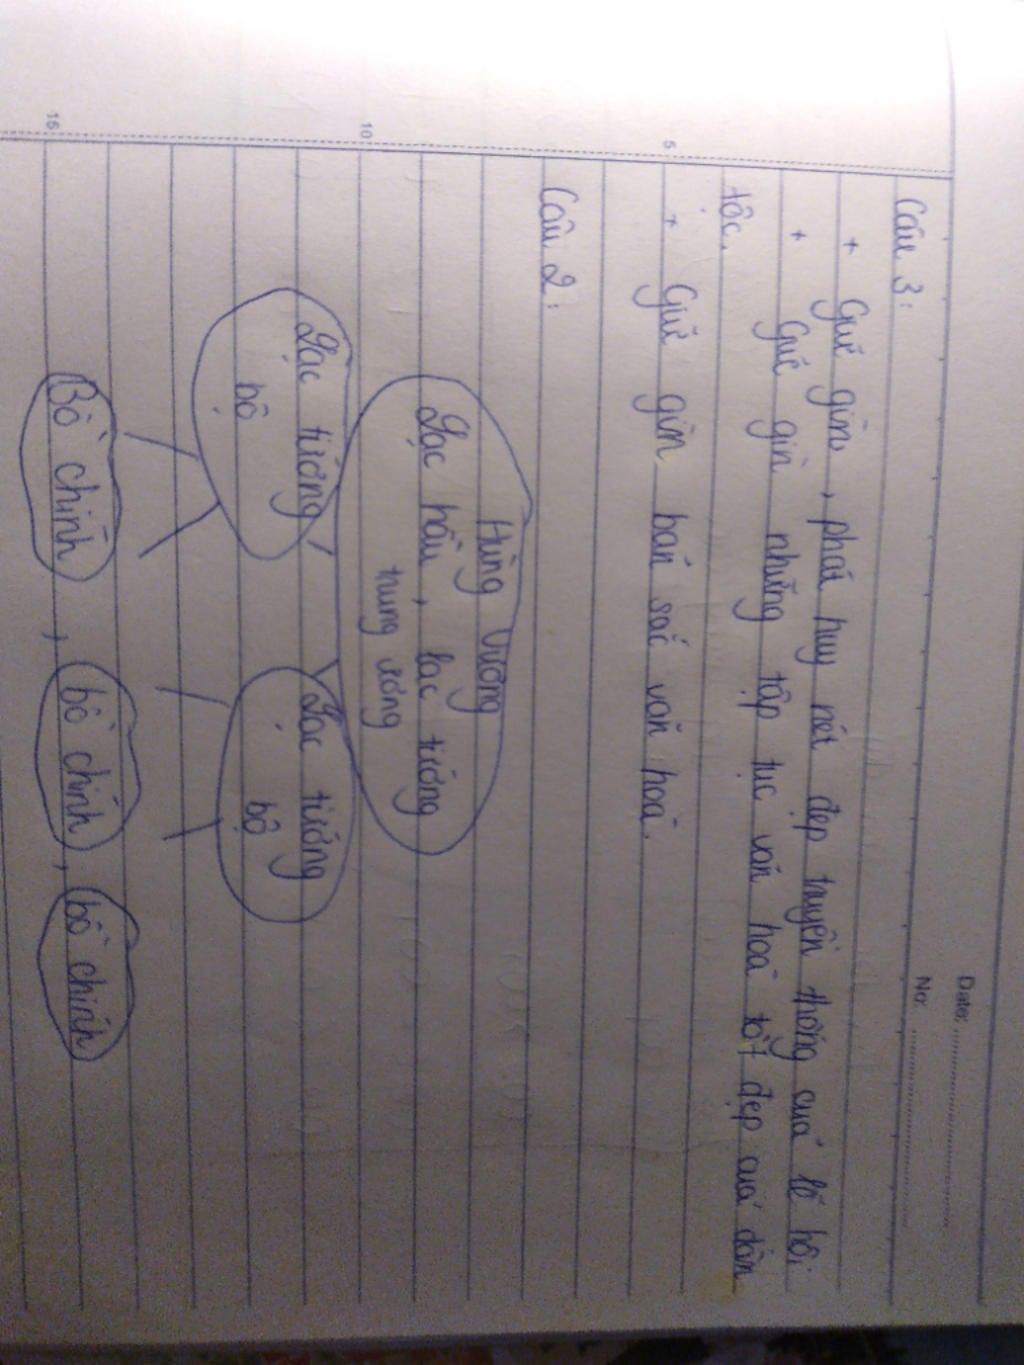 Date: ..............................
No: ..............................
Câu 3:
+ Giữ gìn, phát huy nét đẹp truyền thống của lễ hội
+ Giữ gìn những tập tục văn hoá tốt đẹp của dân
tộc.
+ Giữ gìn bản sắc văn hoá.
5
Câu 2:
Hùng Vương
Lạc hầu, lạc tướng
trung ương
10
Lạc tướng Lạc tướng
bộ bộ
Bồ chính, bồ chính, bồ chính
15